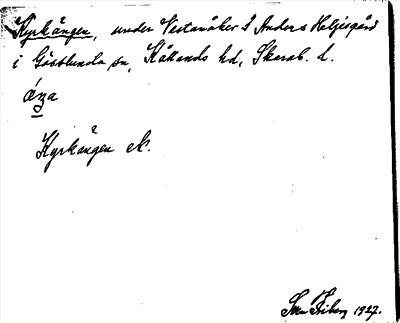 Kyrkängen, under Vestanåker 1 Anders Helgesgård
i Gösslunda sn, Kållands hd, Skarab. l.
Kyrkängen ek.
Sven Friberg 1927.